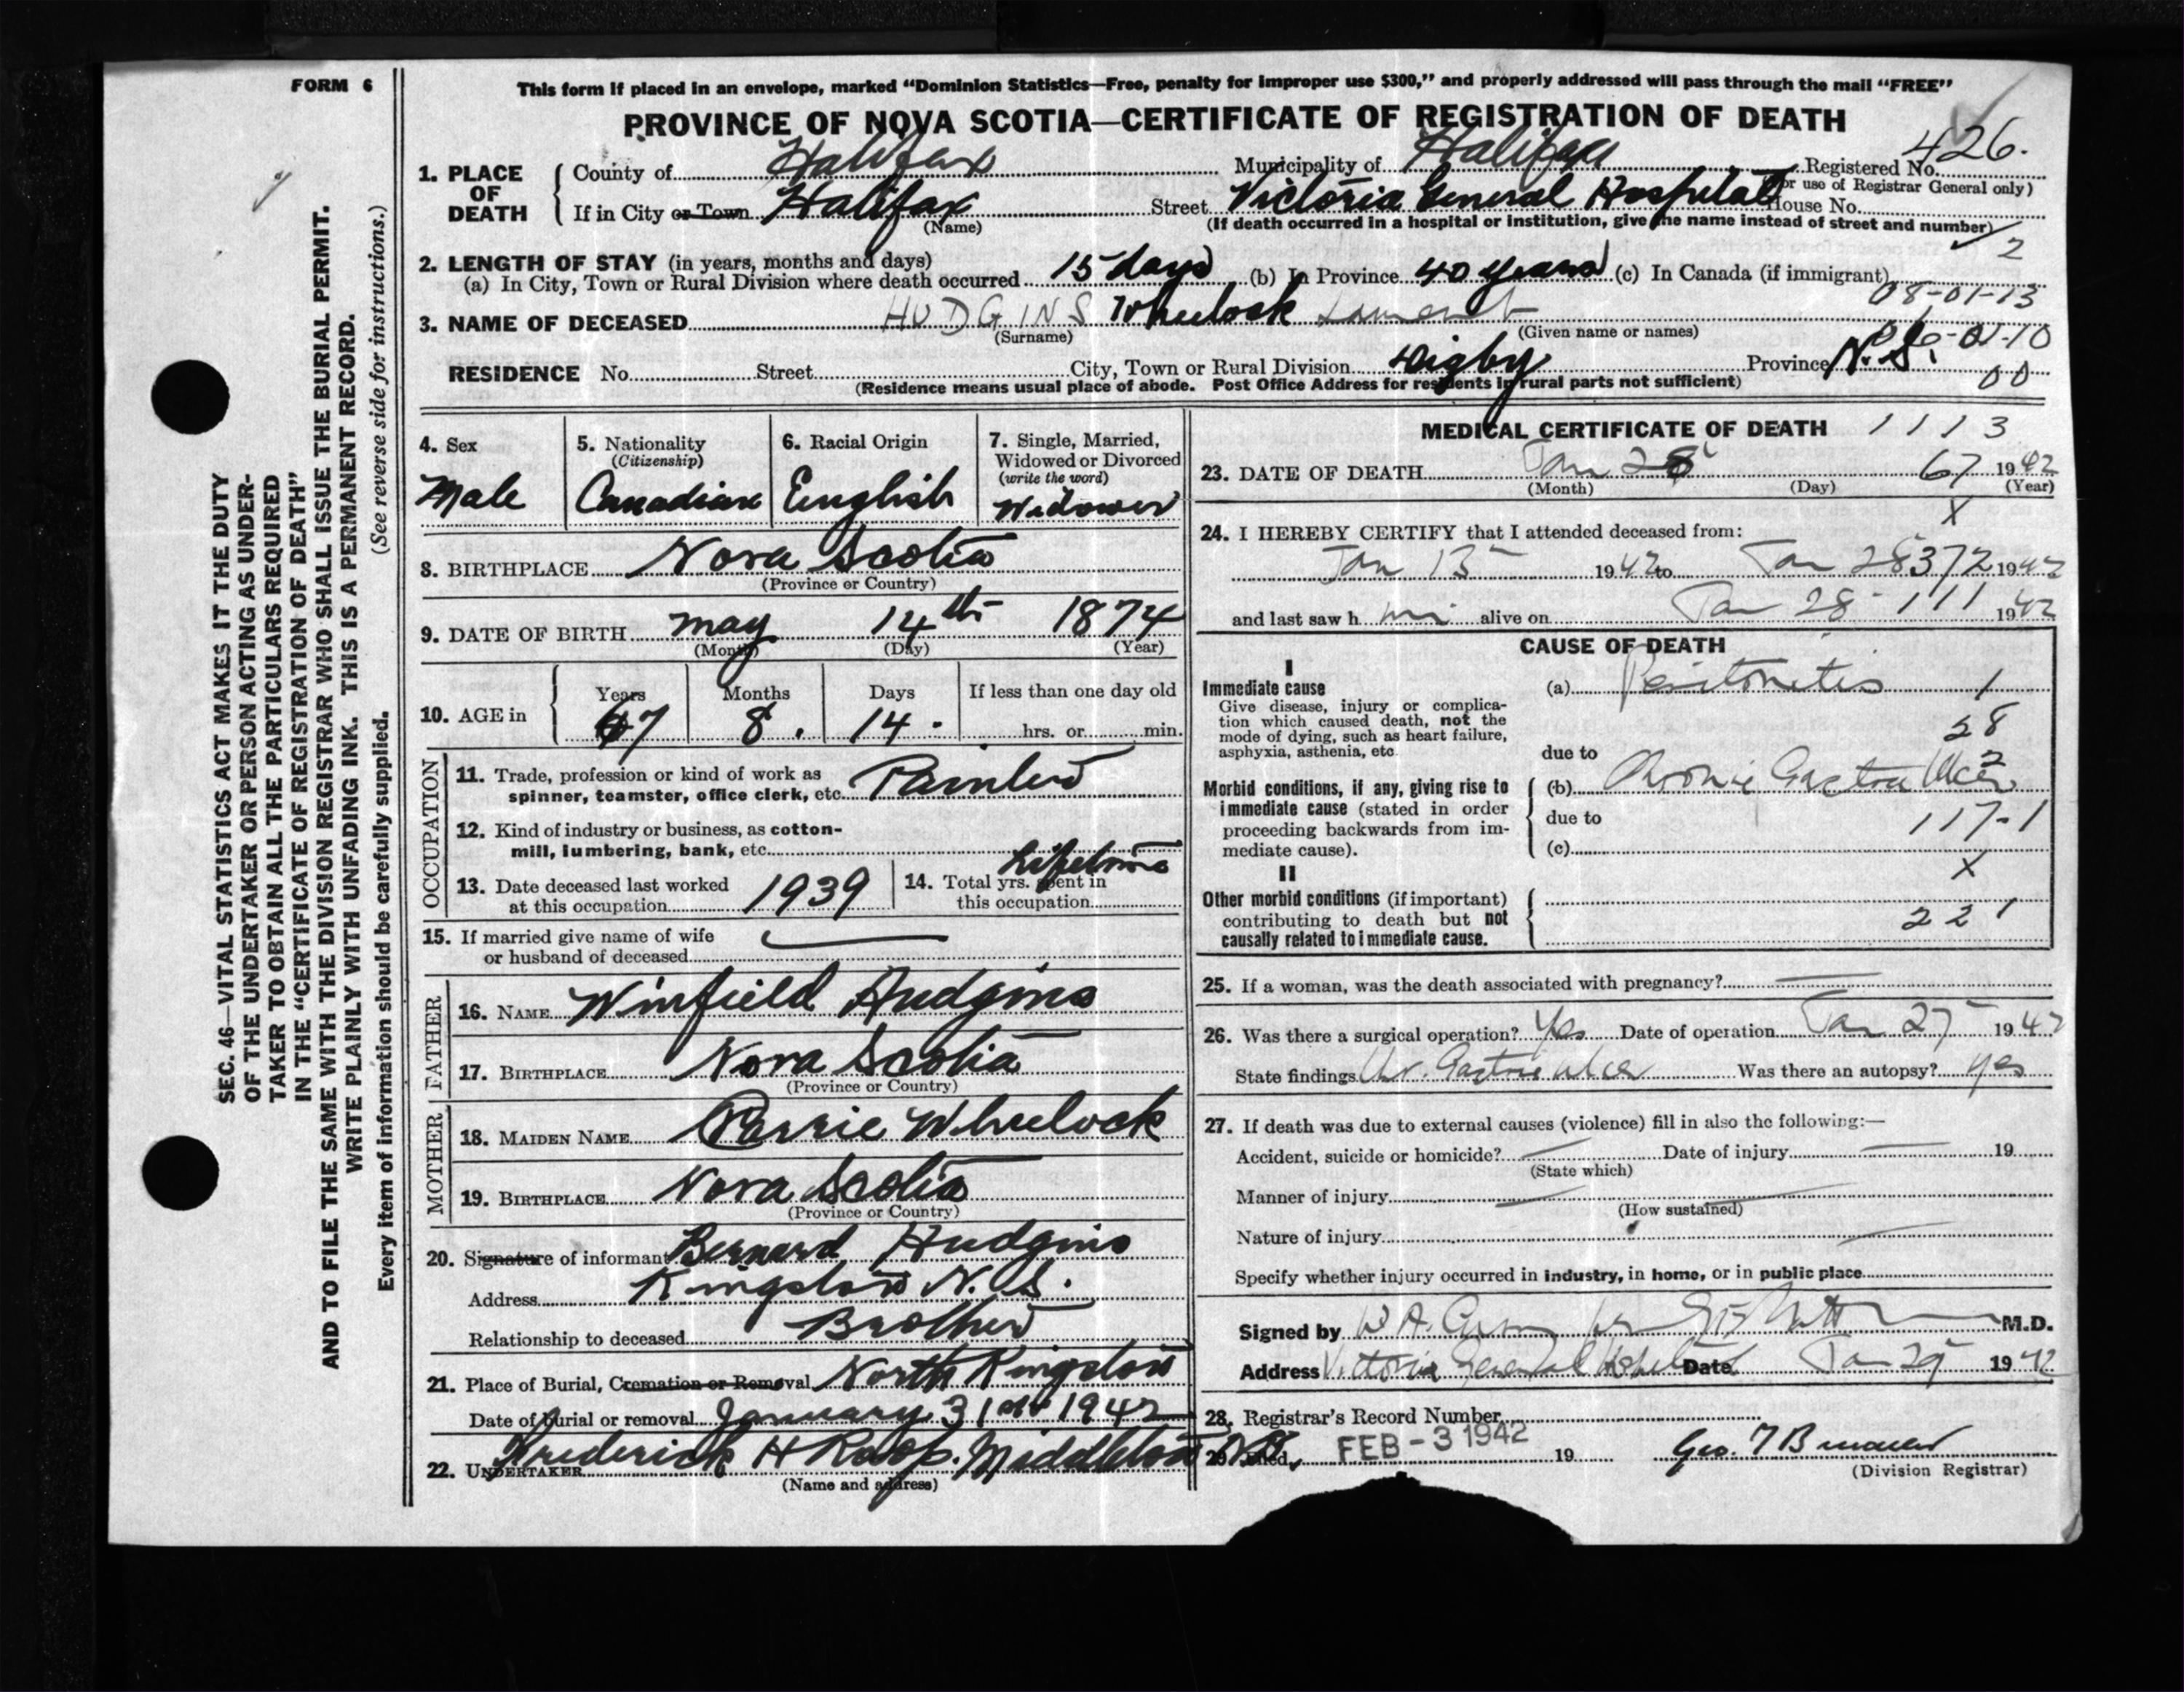 FORM 6
This form if placed in an envelope, marked "Dominion Statistics—Free, penalty for improper use $300," and properly addressed will pass through the mail "FREE"
PROVINCE OF NOVA SCOTIA—CERTIFICATE OF REGISTRATION OF DEATH
1. PLACE OF DEATH
County of Halifax Municipality of Halifax Registered No. 426.
(For use of Registrar General only)
If in City or Town Halifax Street Victoria General Hospital House No.
(Name) (If death occurred in a hospital or institution, give the name instead of street and number)
2
2. LENGTH OF STAY (in years, months and days)
(a) In City, Town or Rural Division where death occurred 15 days (b) In Province 40 years (c) In Canada (if immigrant)
08-01-13
3. NAME OF DECEASED HUDGINS Wheelock Lamont
(Surname) (Given name or names)
-01-10
RESIDENCE No. Street City, Town or Rural Division Digby Province N.S.
(Residence means usual place of abode. Post Office Address for residents in rural parts not sufficient)
00
4. Sex
Male
5. Nationality
(Citizenship)
Canadian
6. Racial Origin
English
7. Single, Married,
Widowed or Divorced
(write the word)
Widower
8. BIRTHPLACE Nova Scotia
(Province or Country)
9. DATE OF BIRTH May 14th 1874
(Month) (Day) (Year)
10. AGE in
Years Months Days If less than one day old
67 8. 14. hrs. or min.
OCCUPATION
11. Trade, profession or kind of work as
spinner, teamster, office clerk, etc. Painter
12. Kind of industry or business, as cotton-
mill, lumbering, bank, etc.
13. Date deceased last worked
at this occupation 1939
14. Total yrs. spent in
this occupation Lifetime
15. If married give name of wife
or husband of deceased
FATHER
16. NAME Winfield Hudgins
17. BIRTHPLACE Nova Scotia
(Province or Country)
MOTHER
18. MAIDEN NAME Wheelock
19. BIRTHPLACE Nova Scotia
(Province or Country)
20. Signature of informant Bernard Hudgins
Address Kingston N.S.
Relationship to deceased Brother
21. Place of Burial, Cremation or Removal North Kingston
Date of burial or removal January 31st 1942
22. UNDERTAKER Frederick H Roop. Middleton N.S.
(Name and address)
MEDICAL CERTIFICATE OF DEATH 1113
23. DATE OF DEATH Jan 28 67 1942
(Month) (Day) (Year)
X
24. I HEREBY CERTIFY that I attended deceased from:
Jan 15 1942 to Jan 28 372 1942
and last saw h im alive on Jan 28 111 1942
CAUSE OF DEATH
I
Immediate cause
Give disease, injury or complica-
tion which caused death, not the
mode of dying, such as heart failure,
asphyxia, asthenia, etc.
(a) Peritonitis 1
28
due to
Morbid conditions, if any, giving rise to
immediate cause (stated in order
proceeding backwards from im-
mediate cause).
2
(b) Chronic Gastric Ulcer
due to 117-1
(c)
X
II
Other morbid conditions (if important)
contributing to death but not
causally related to immediate cause.
221
25. If a woman, was the death associated with pregnancy?
26. Was there a surgical operation? Yes Date of operation Jan 27 1942
State findings Chr. Gastric ulcer Was there an autopsy? yes
27. If death was due to external causes (violence) fill in also the following:—
Accident, suicide or homicide? Date of injury 19
(State which)
Manner of injury
(How sustained)
Nature of injury
Specify whether injury occurred in industry, in home, or in public place
Signed by W A. M.D.
Address Victoria General Hospital Date Jan 29 1942
28. Registrar's Record Number
29. Filed, FEB -3 1942 19
(Division Registrar)
SEC. 46—VITAL STATISTICS ACT MAKES IT THE DUTY
OF THE UNDERTAKER OR PERSON ACTING AS UNDER-
TAKER TO OBTAIN ALL THE PARTICULARS REQUIRED
IN THE "CERTIFICATE OF REGISTRATION OF DEATH"
AND TO FILE THE SAME WITH THE DIVISION REGISTRAR WHO SHALL ISSUE THE BURIAL PERMIT.
WRITE PLAINLY WITH UNFADING INK. THIS IS A PERMANENT RECORD.
Every item of information should be carefully supplied. (See reverse side for instructions.)